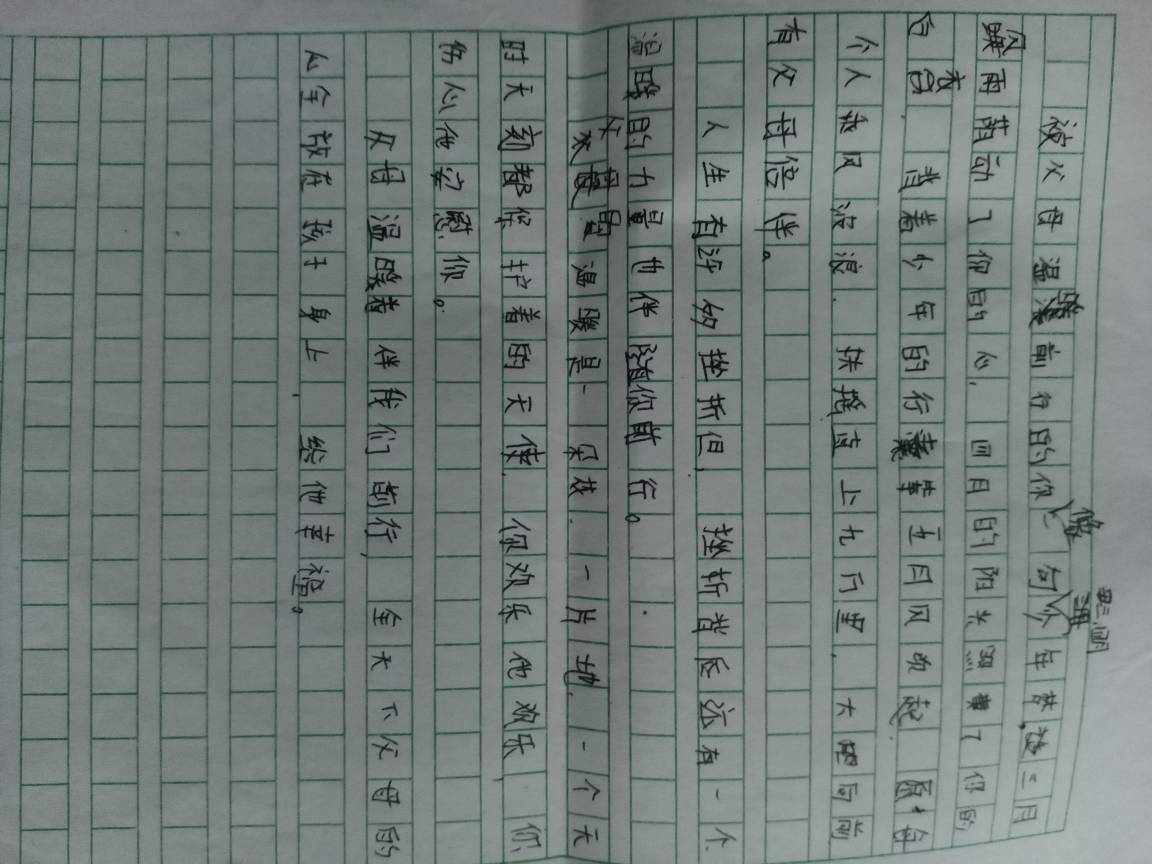 被父母温暖前行的你像一句少年梦,被三月
雨萌动了你的心,四月的阳光照耀了你的
背着少年的行囊，五月风吹起 愿每
个人我风波浪，扶摇直上九万里，大吧向前
有父母倍伴。
人生有许多挫折但，挫折背后还有一个
温暖的力量也伴随你前行。
父母温暖是一 一片地，一个天
时天刻都保护着的天使，你欢乐他欢乐，你
伤心他安慰你。
父母温暖着伴我们前行，全天下父母的
心全放在孩子身上，给他幸福。